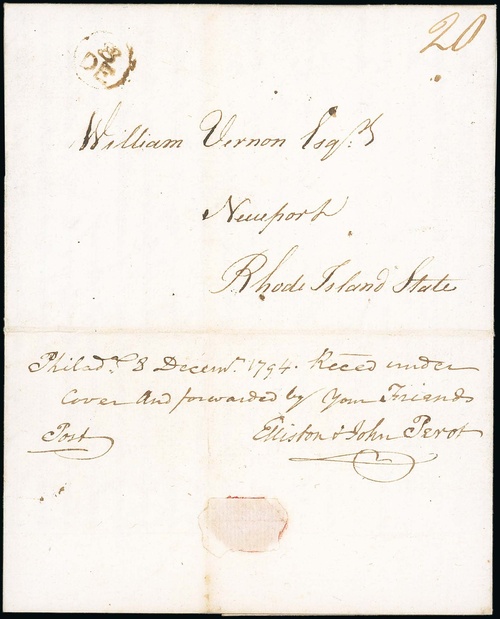 20
8
DE
William Vernon Esqr.
Newport
Rhode Island State
Philada. 8 Decemr. 1794. Recced under
Cover And forwarded by Your Friends
Post Elliston & John Perot